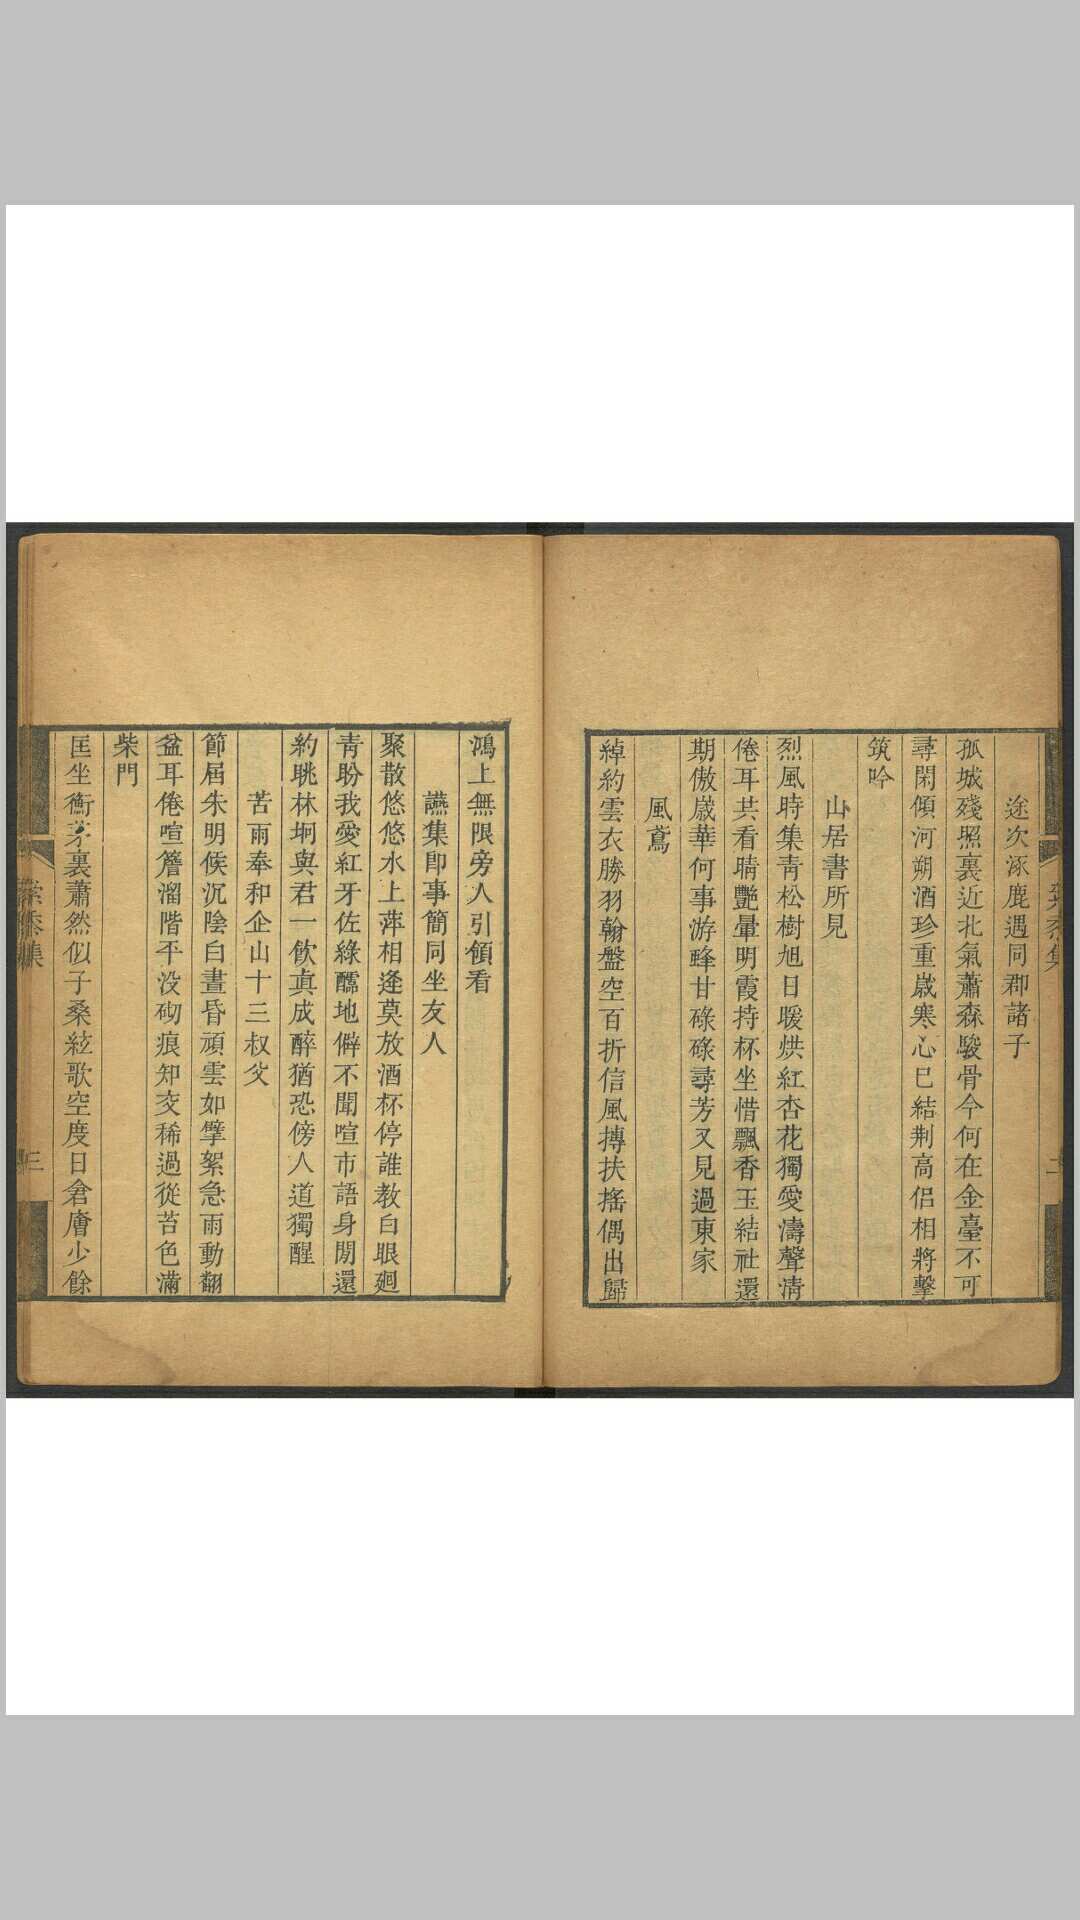 途次涿鹿遇同郡諸子
孤城殘照裏近北氣蕭森駿骨今何在金臺不可
尋閑傾河朔酒珍重歲寒心已結荆高侶相將擊
筑吟
山居書所見
烈風時集青松樹旭日暖烘紅杏花獨愛濤聲清
倦耳共看晴艷暈明霞持杯坐惜飄香玉結社還
期傲歲華何事游蜂甘碌碌尋芳又見過東家
風鳶
綽約雲衣勝羽翰盤空百折信風摶扶搖偶出歸
鴻上無限旁人引領看
讌集卽事簡同坐友人
聚散悠悠水上萍相逢莫放酒杯停誰教白眼廻
青盼我愛紅牙佐綠醽地僻不聞喧市語身閒還
約眺林坰與君一飲眞成醉猶恐傍人道獨醒
苦雨奉和企山十三叔父
節屆朱明候沉陰白晝昏頑雲如擘絮急雨動翻
盆耳倦喧簷溜階平没砌痕知交稀過從苔色滿
柴門
匡坐衡茅裏蕭然似子桑絃歌空度日倉廥少餘
集
三